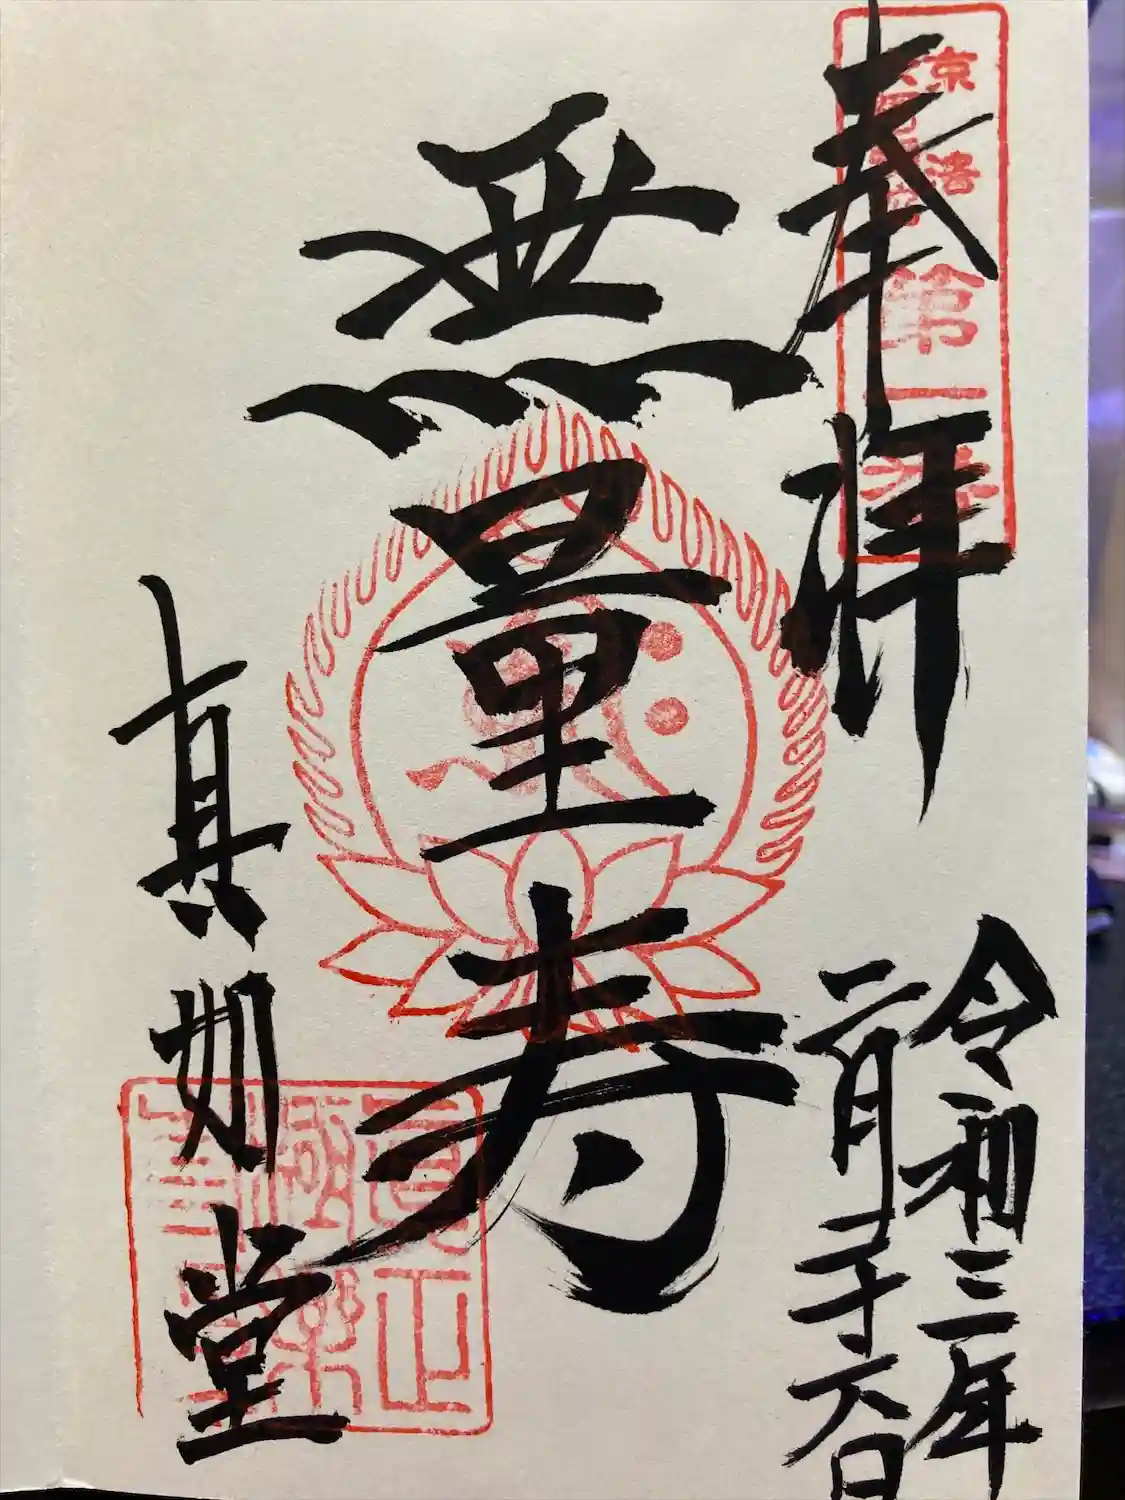 奉拝
令和三年
二月二十六日
無量寿
真如堂
第一番